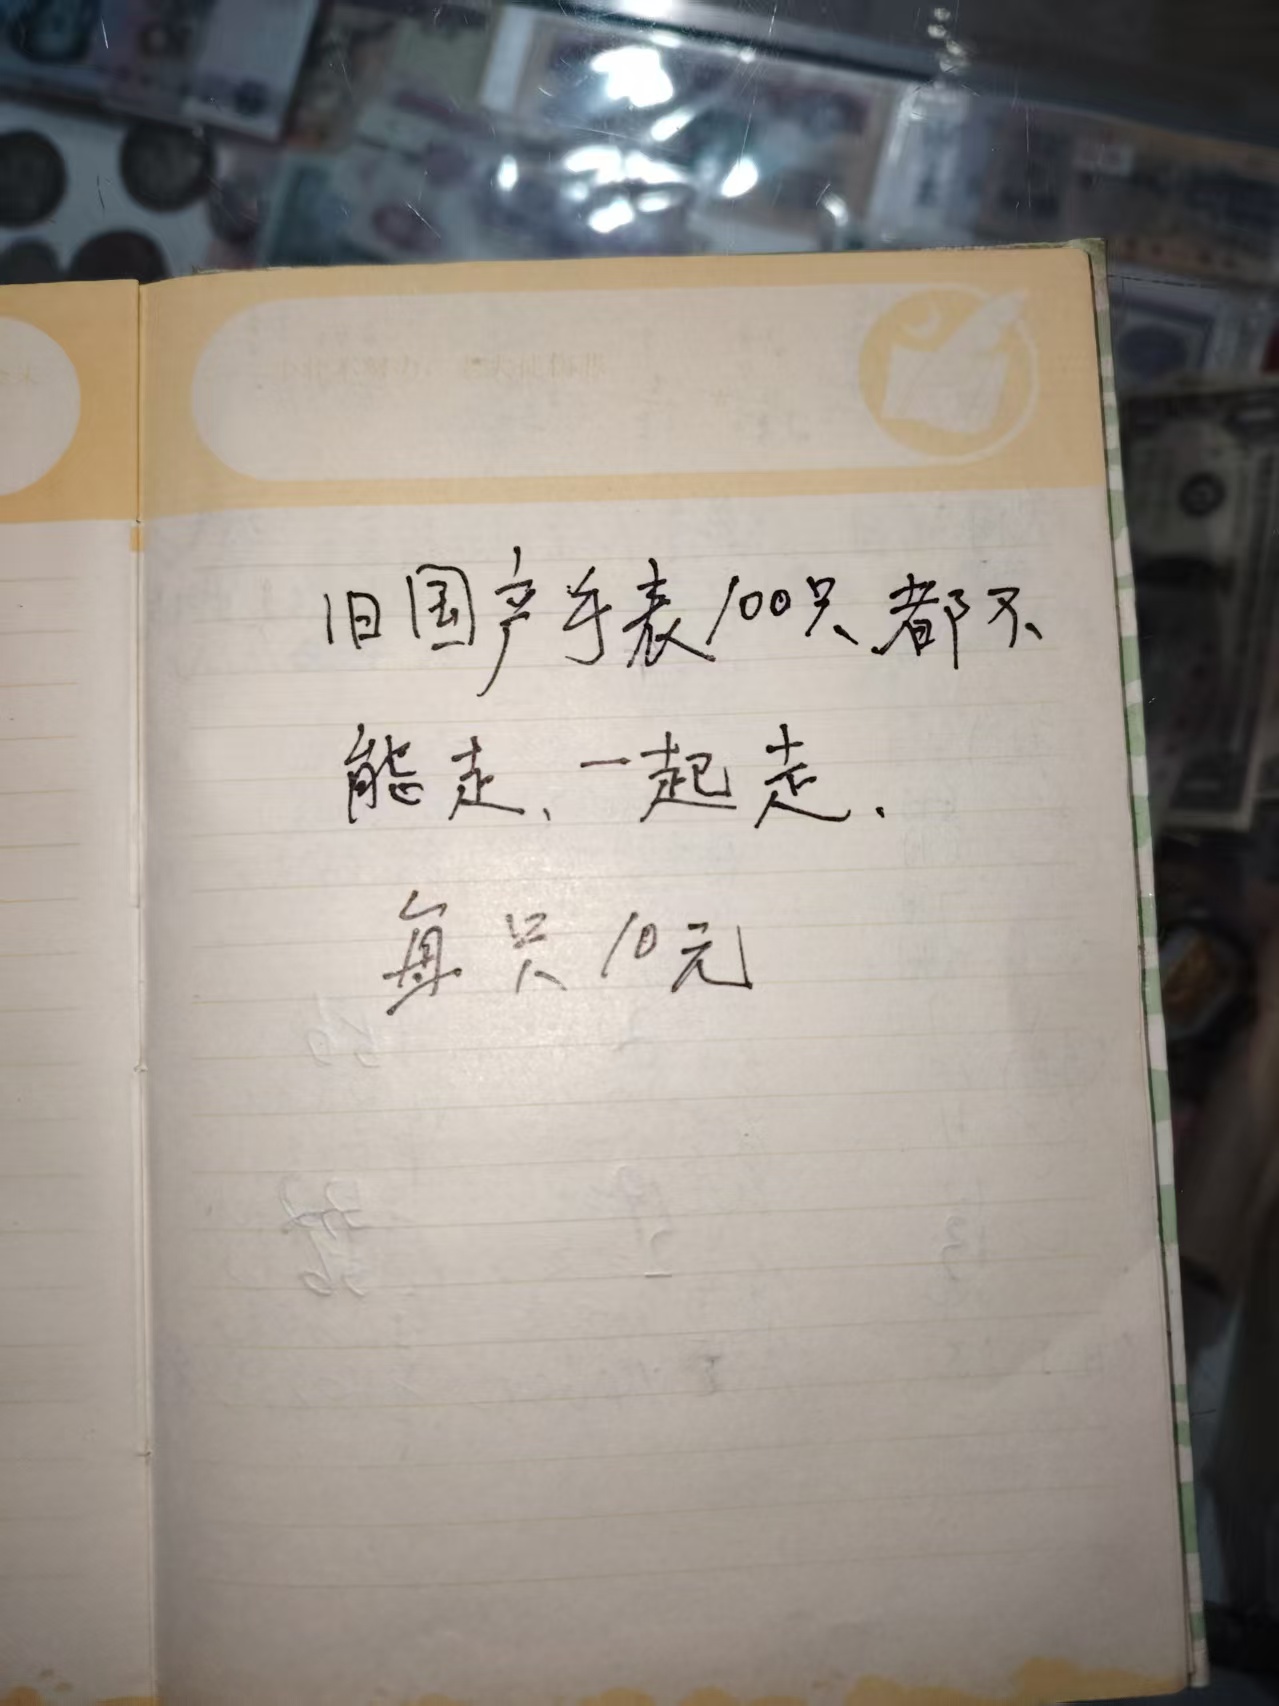 旧国产手表100只都不
能走、一起走.
每只10元